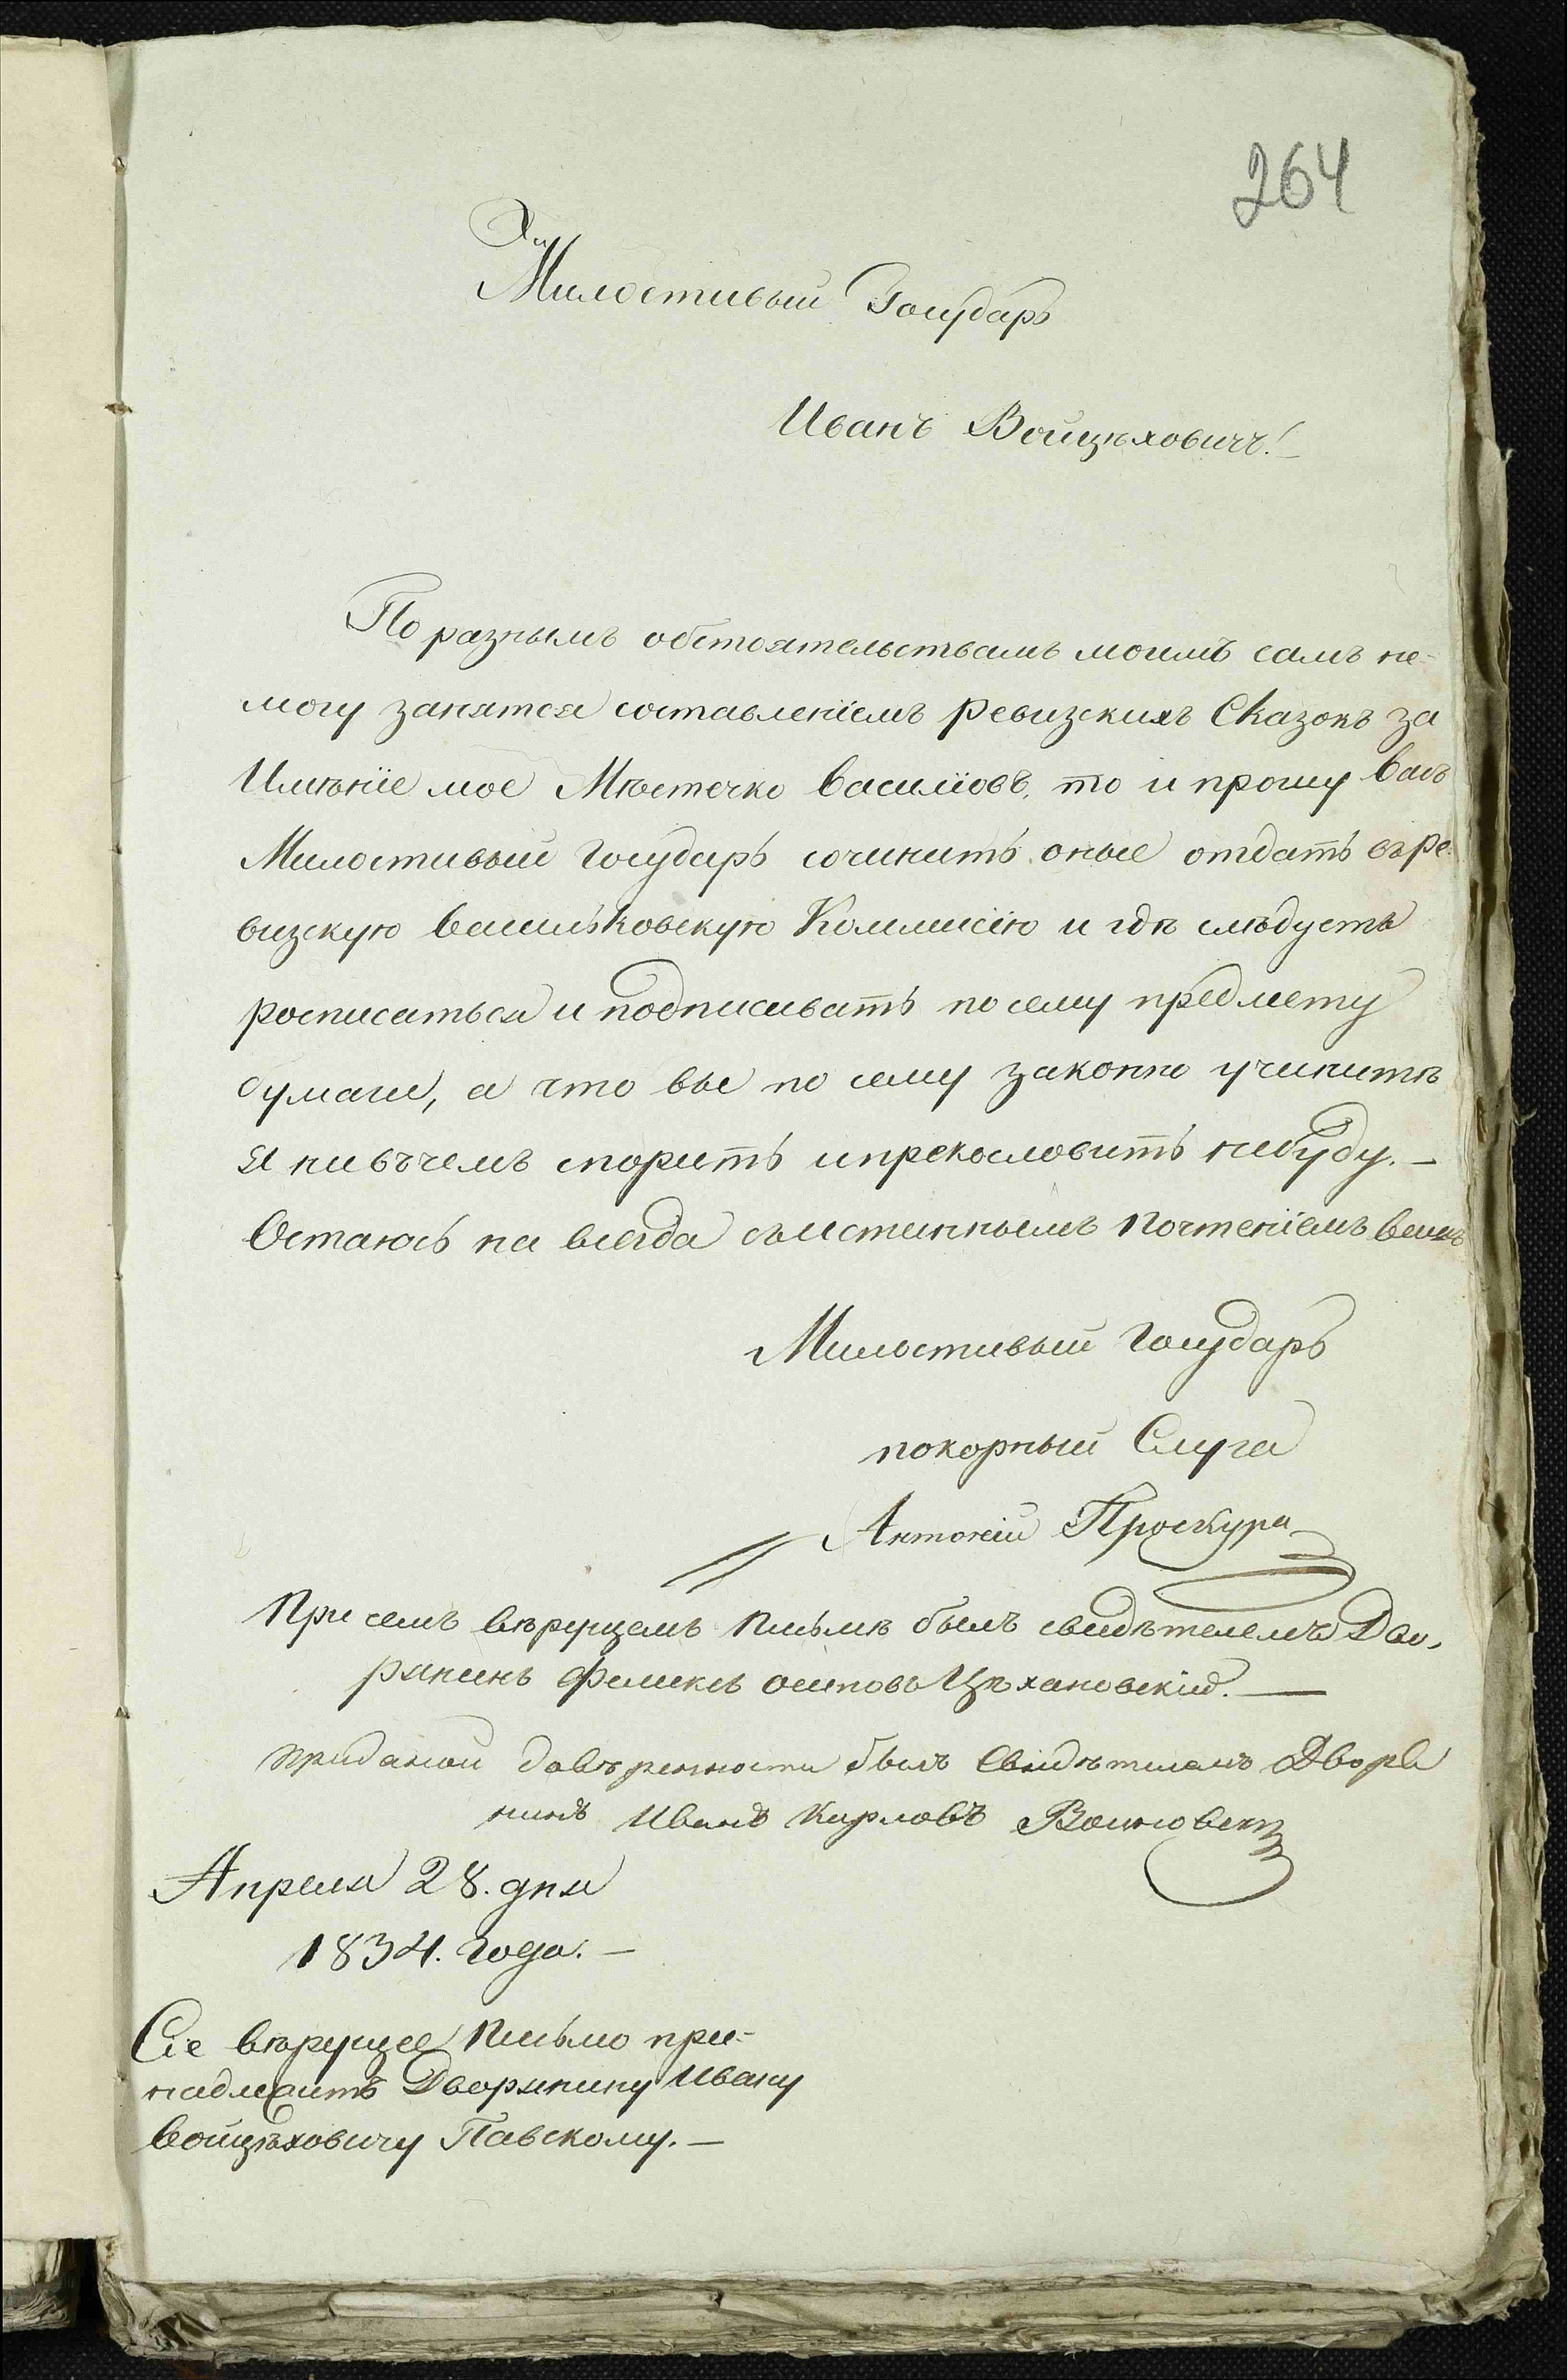 264
Милостивый Государь
Иванъ Войцѣховичъ!
По разнымъ обстоятельствамъ моимъ самъ не-
могу занятся составленіемъ ревизскихъ Сказокъ за
Имѣніе мое Мѣстечко Василіовъ, то и прошу Васъ
Милостивый Государь сочинить оные отдать въ ре-
визскую Васильковскую Коммисію и гдѣ слѣдуетъ
росписаться и подписивать по сему предмету
бумаги, а что вы по сему законно учинитѣ
я ни въ чемъ спорить и прекословить небуду. —
Остаюсь на всегда съ истиннымъ почтеніемъ вашъ
Милостивый Государь
покорный Слуга
Антоній Проскура
При семъ вѣрущемъ письмѣ былъ свидѣтелемъ Дво-
рянинъ Феликсъ Осиповъ Цѣхановскій. —
При даной довѣренности былъ Свидѣтелемъ Дворя
нинъ Иванъ Карловъ
Апреля 28. дня
1834. года. —
Сіе вѣрущее письмо при-
надлежитъ Дворянину Ивану
Войцѣховичу Павскому. —